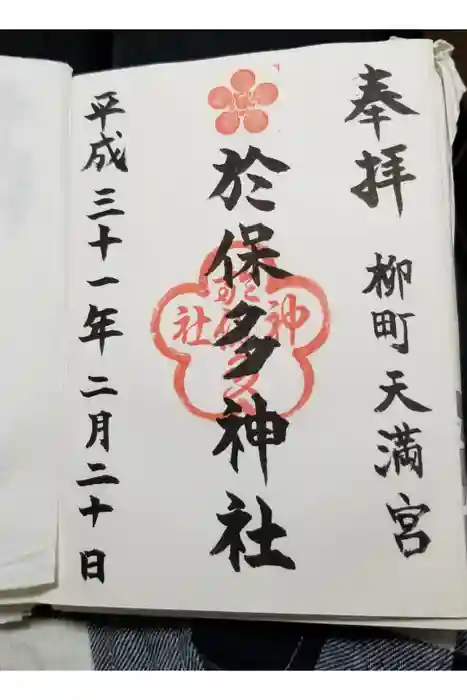 奉拝 柳町天満宮
於保多神社
於保多
神
社
平成三十一年二月二十日